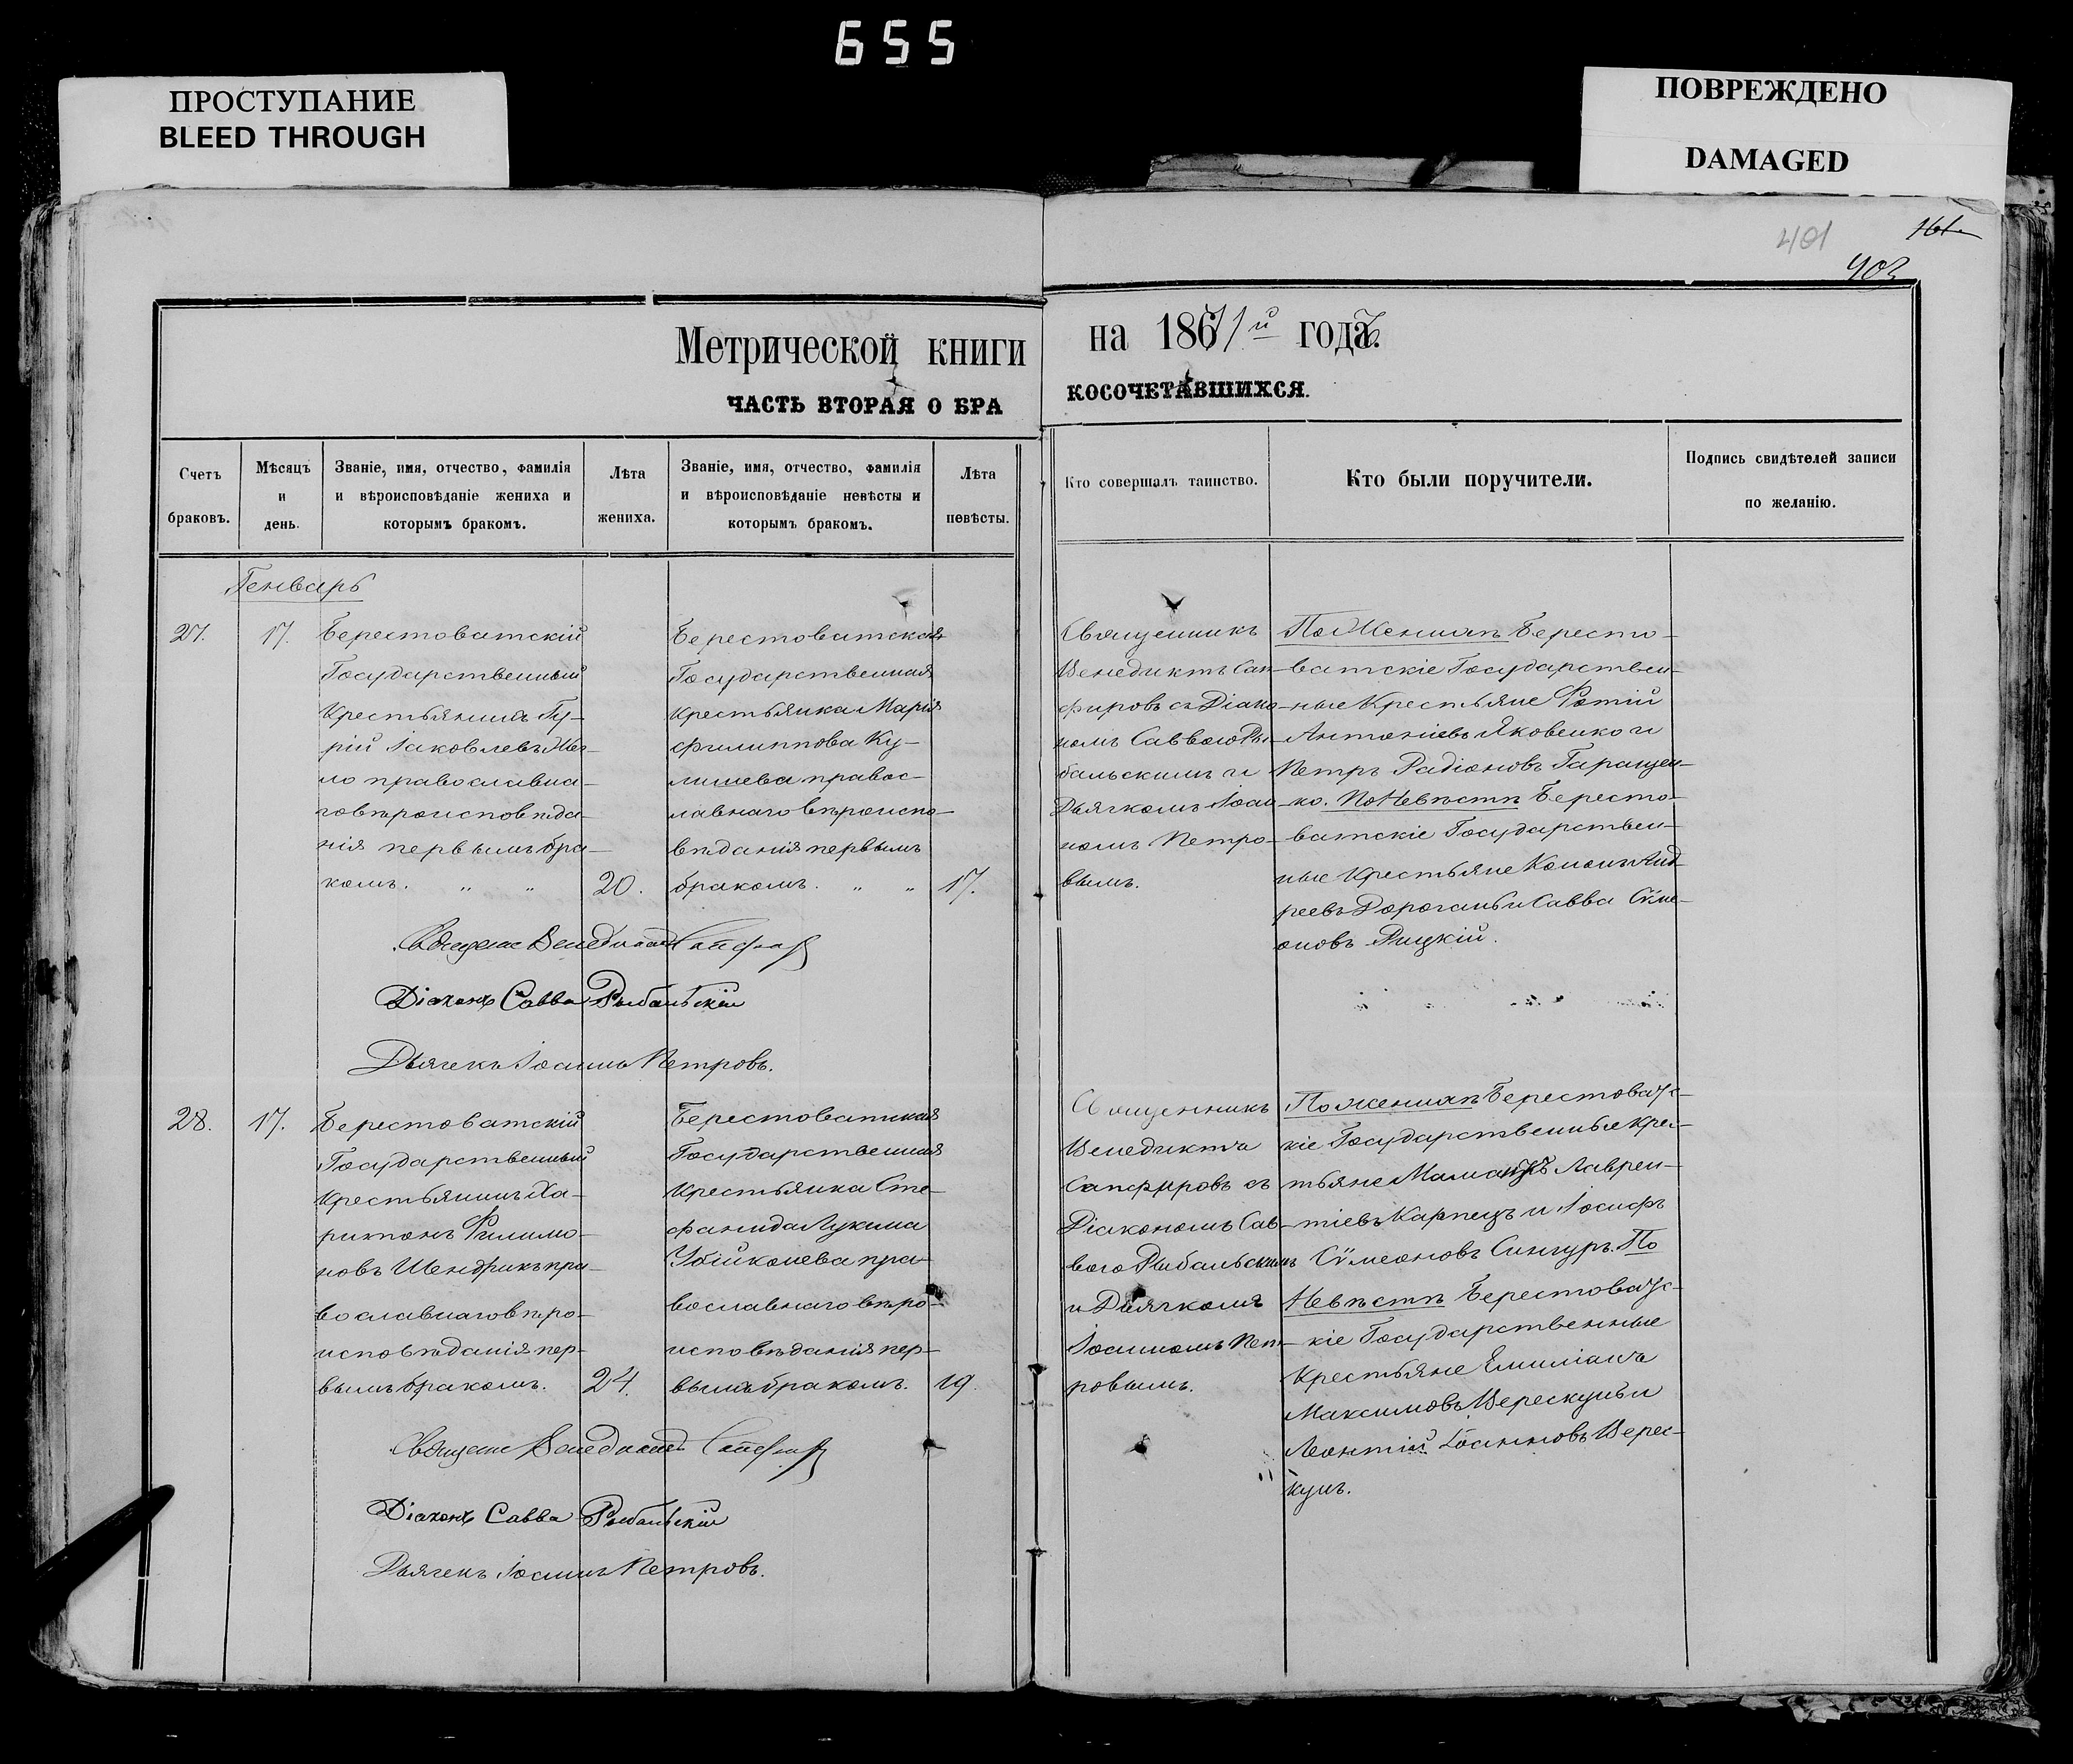 655
ПРОСТУПАНИЕ
BLEED THROUGH
ПОВРЕЖДЕНО
DAMAGED
401
161
403
Метрической книги
на 1871й годъ.
ЧАСТЬ ВТОРАЯ О БРА
КОСОЧЕТАВШИХСЯ.
Счетъ
браковъ.
Мѣсяцъ
и
день.
Званіе, имя, отчество, фамилія
и вѣроисповѣданіе жениха и
которымъ бракомъ.
Лѣта
жениха.
Званіе, имя, отчество, фамилія
и вѣроисповѣданіе невѣсты и
которымъ бракомъ.
Лѣта
невѣсты.
Кто совершалъ таинство.
Кто были поручители.
Подпись свидѣтелей записи
по желанію.
Генварь
27.
17.
Берестоватскій
Государственный
Крестьянинъ Гу-
рій Іаковлевъ
православна-
говѣроисповѣда-
нія первымъ бра-
комъ. „ „
20.
Берестоватская
Государственная
Крестьянка Марія
Филиппова Ку-
лишева правос-
лавнаго вѣроиспо-
вѣданія первымъ
бракомъ. „ „
17.
Священникъ
Венедиктъ Сап-
фировъ съ Діако-
номъ Саввою Ры-
бальскимъ и
Дьячкомъ Іоан-
номъ Петро-
вымъ.
По Женихѣ Бересто-
ватскіе Государствен-
ные Крестьяне Фотій
Антоніевъ Яковенко и
Петръ Радіоновъ Гаращен-
ко. По Невѣстѣ Бересто-
ватскіе Государствен-
ные Крестьяне Кононъ Анд-
реевъ Дороганъ и Савва Сѵме-
оновъ Рицкій.
Священникъ Венедиктъ Сапфировъ
Діаконъ Савва Рыбальскій
Дьячекъ Іоаннъ Петровъ.
28.
17.
Берестоватскій
Государственный
Крестьянинъ Ха-
ритонъ Филимо-
новъ Шендрикъ пра-
вославнаго вѣро-
исповѣданія пер-
вымъ бракомъ.
24.
Берестоватская
Государственная
Крестьянка Сте-
фанида Лукина
Убійконева пра-
вославнаго вѣро-
исповѣданія пер-
вымъ бракомъ.
19.
Священникъ
Венедиктъ
Сапфировъ съ
Діакономъ Сав-
вою Рыбальскимъ
и Дьячкомъ
Іоанномъ Пет-
ровымъ.
По женихѣ Берестоватс-
кіе Государственные Крес-
тьяне Мамантъ Лаврен-
тіевъ Карпецъ и Іосифъ
Сѵмеоновъ Сингуръ. По
Невѣстѣ Берестоватс-
кіе Государственные
Крестьяне Емиліанъ
Максимовъ Верескунъ и
Леонтій Іоанновъ Верес-
кунъ.
Священникъ Венедиктъ Сапфировъ
Діаконъ Савва Рыбальскій
Дьячекъ Іоаннъ Петровъ.